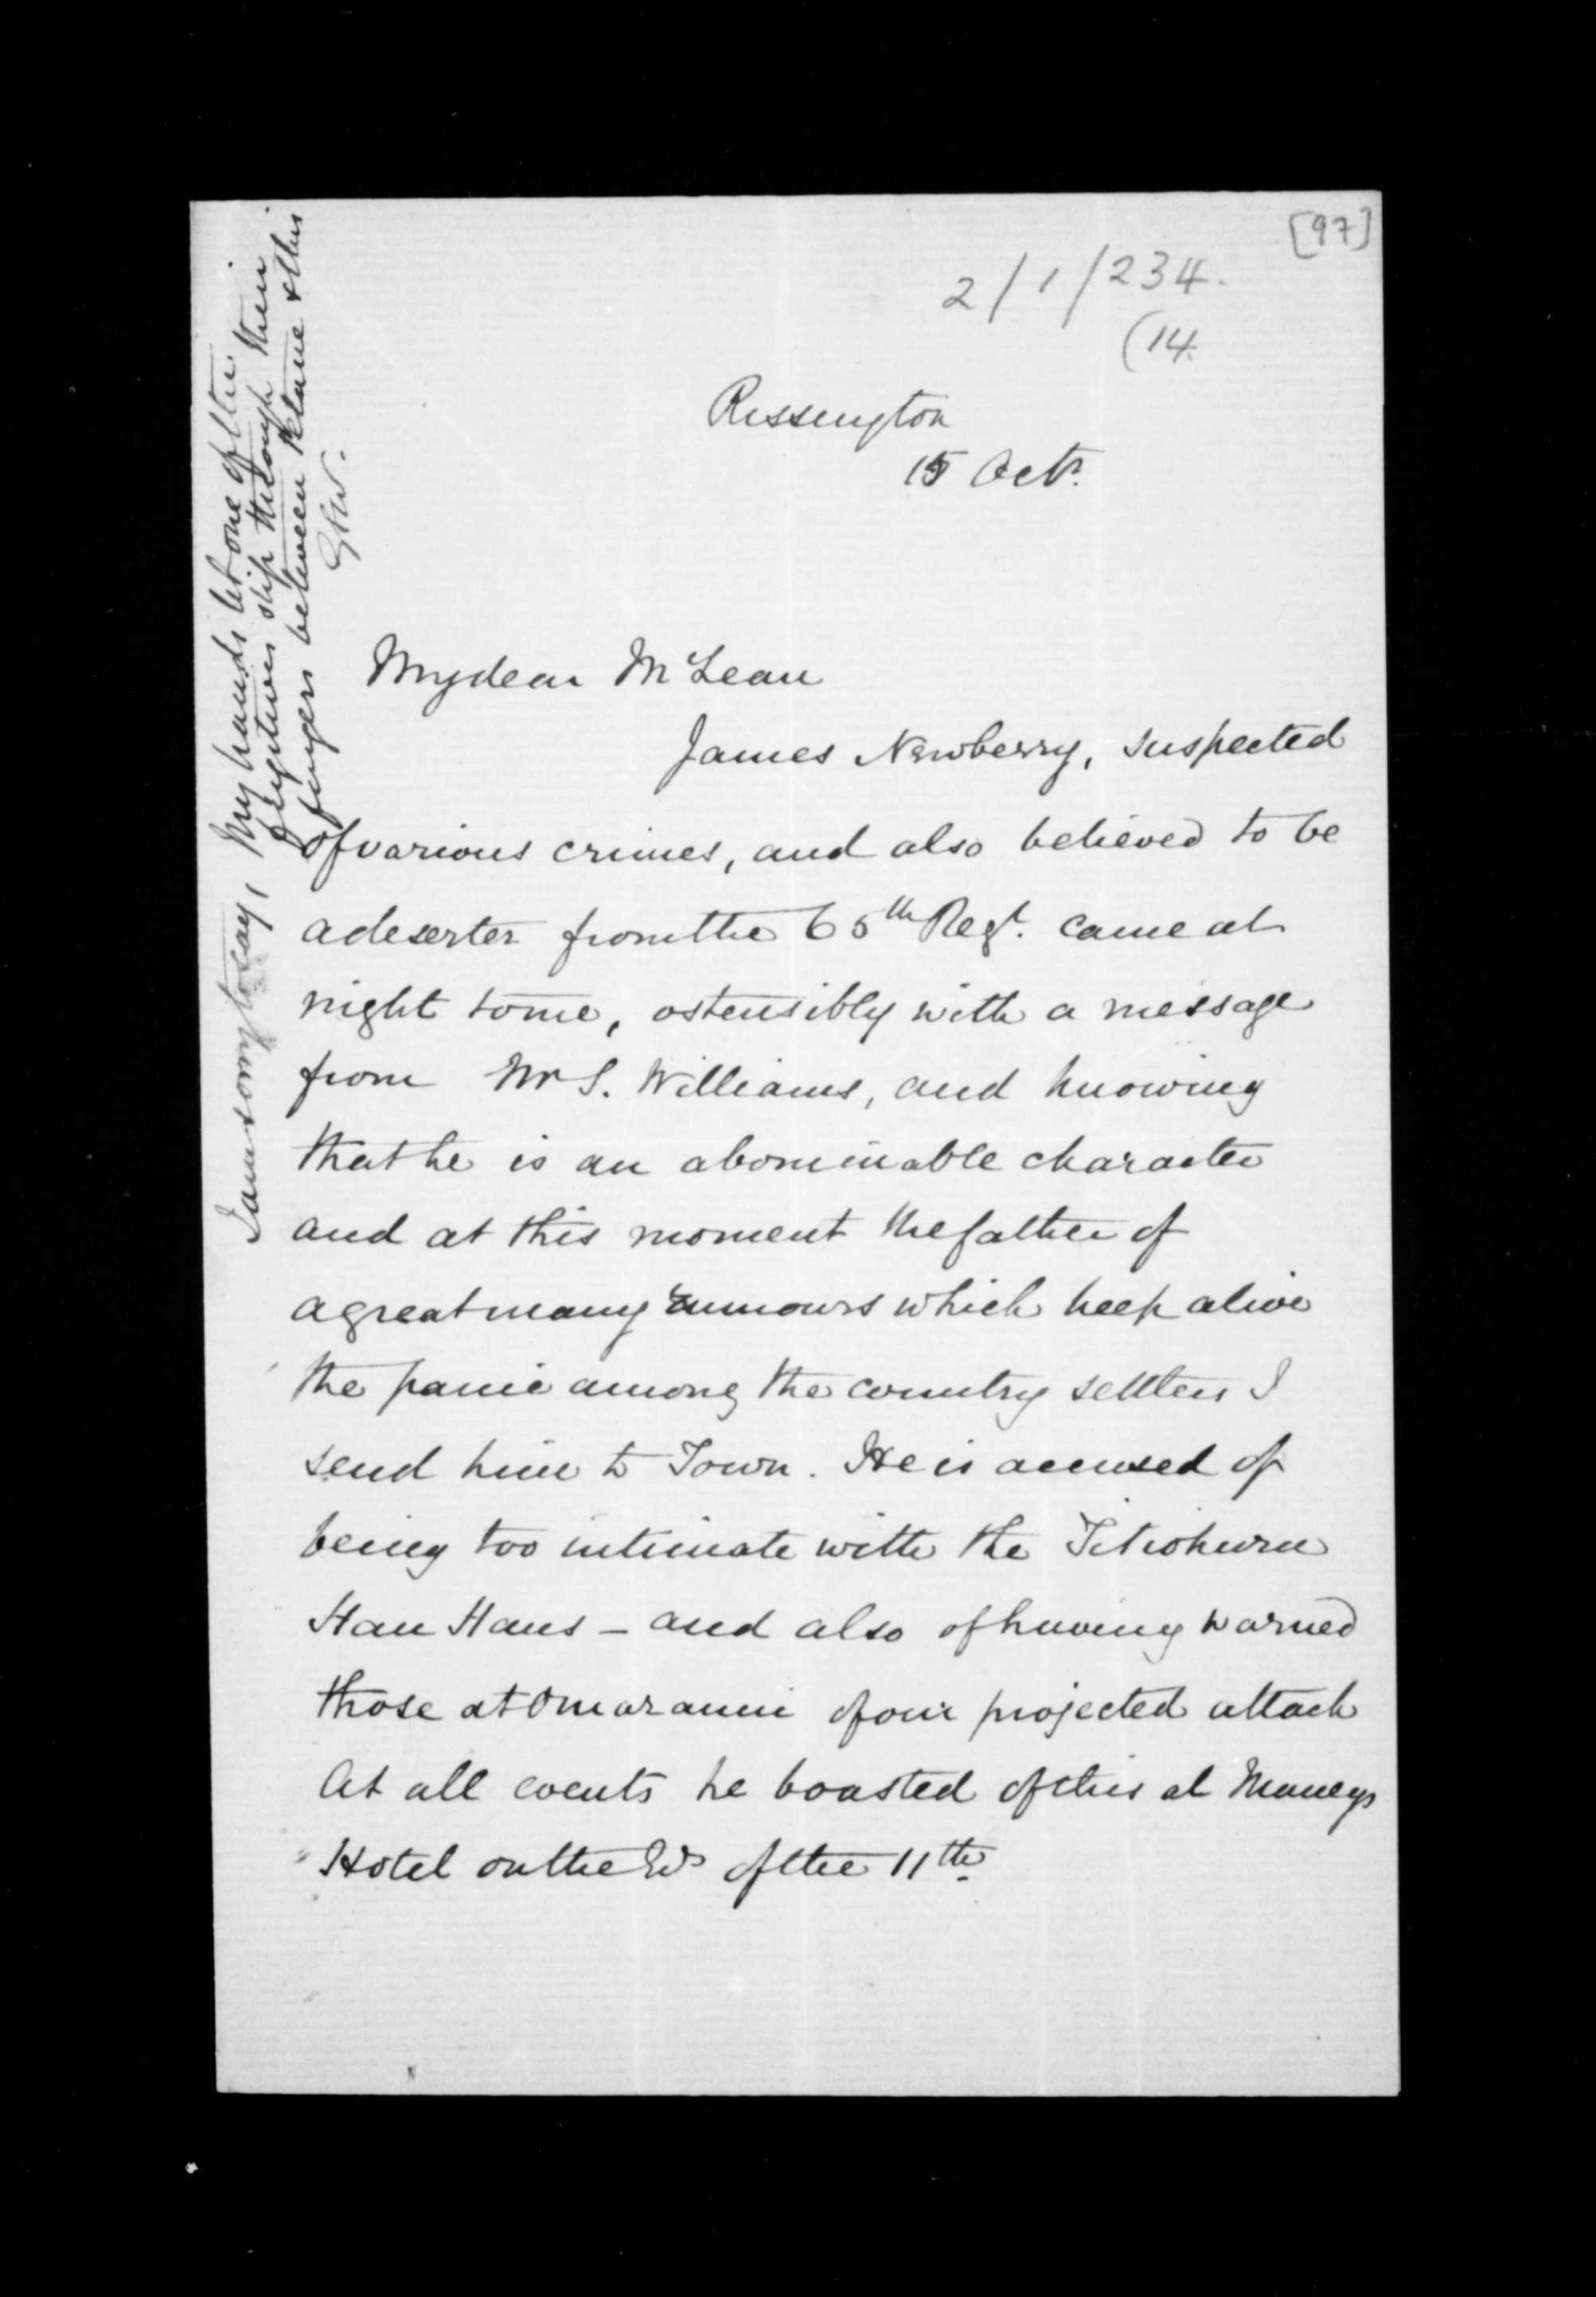 [97]
2/1/234.
(14.
Rissington
15 Octr.
My dear McLean
James Newberry, suspected
of various crimes, and also believed to be
a deserter from the 65th Regt. came at
night to me, ostensibly with a message
from Mr S. Williams, and knowing
that he is an abominable character
and at this moment the father of
a great many rumours which keep alive
the panic among the country settlers I
send him to Town. He is accused of
being too intimate with the Titiokura
Hau Haus - and also of having warned
those at Omarunui of our projected attack
At all events he boasted of this at Maneys
Hotel on the of the 11th.
I am sorry to say, my hands let one of the
fugitives slip through their
fingers between Petane & this
GSW.